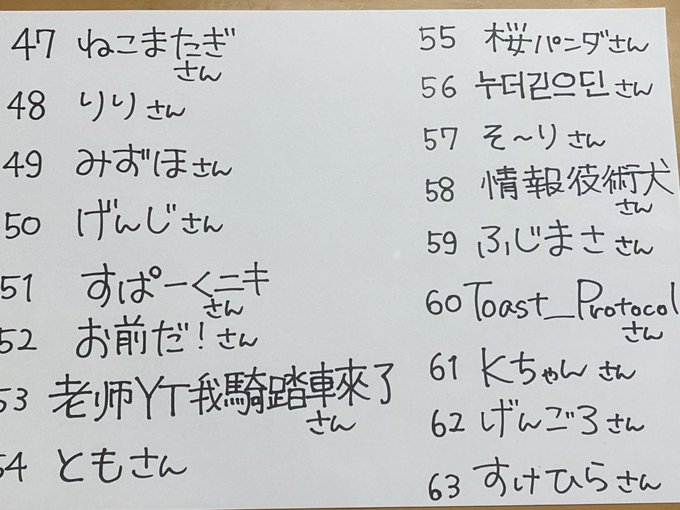 47 ねこまたぎさん
48 りりさん
49 みずほさん
50 げんじさん
51 すぱーくニキさん
52 お前だ！さん
53 老师YT我騎踏車來了さん
54 ともさん
55 桜パンダさん
56 누더긷으딘さん
57 そ〜りさん
58 情報役術犬さん
59 ふじまささん
60 Toast_Protocolさん
61 Kちゃんさん
62 げんごろさん
63 すけひらさん